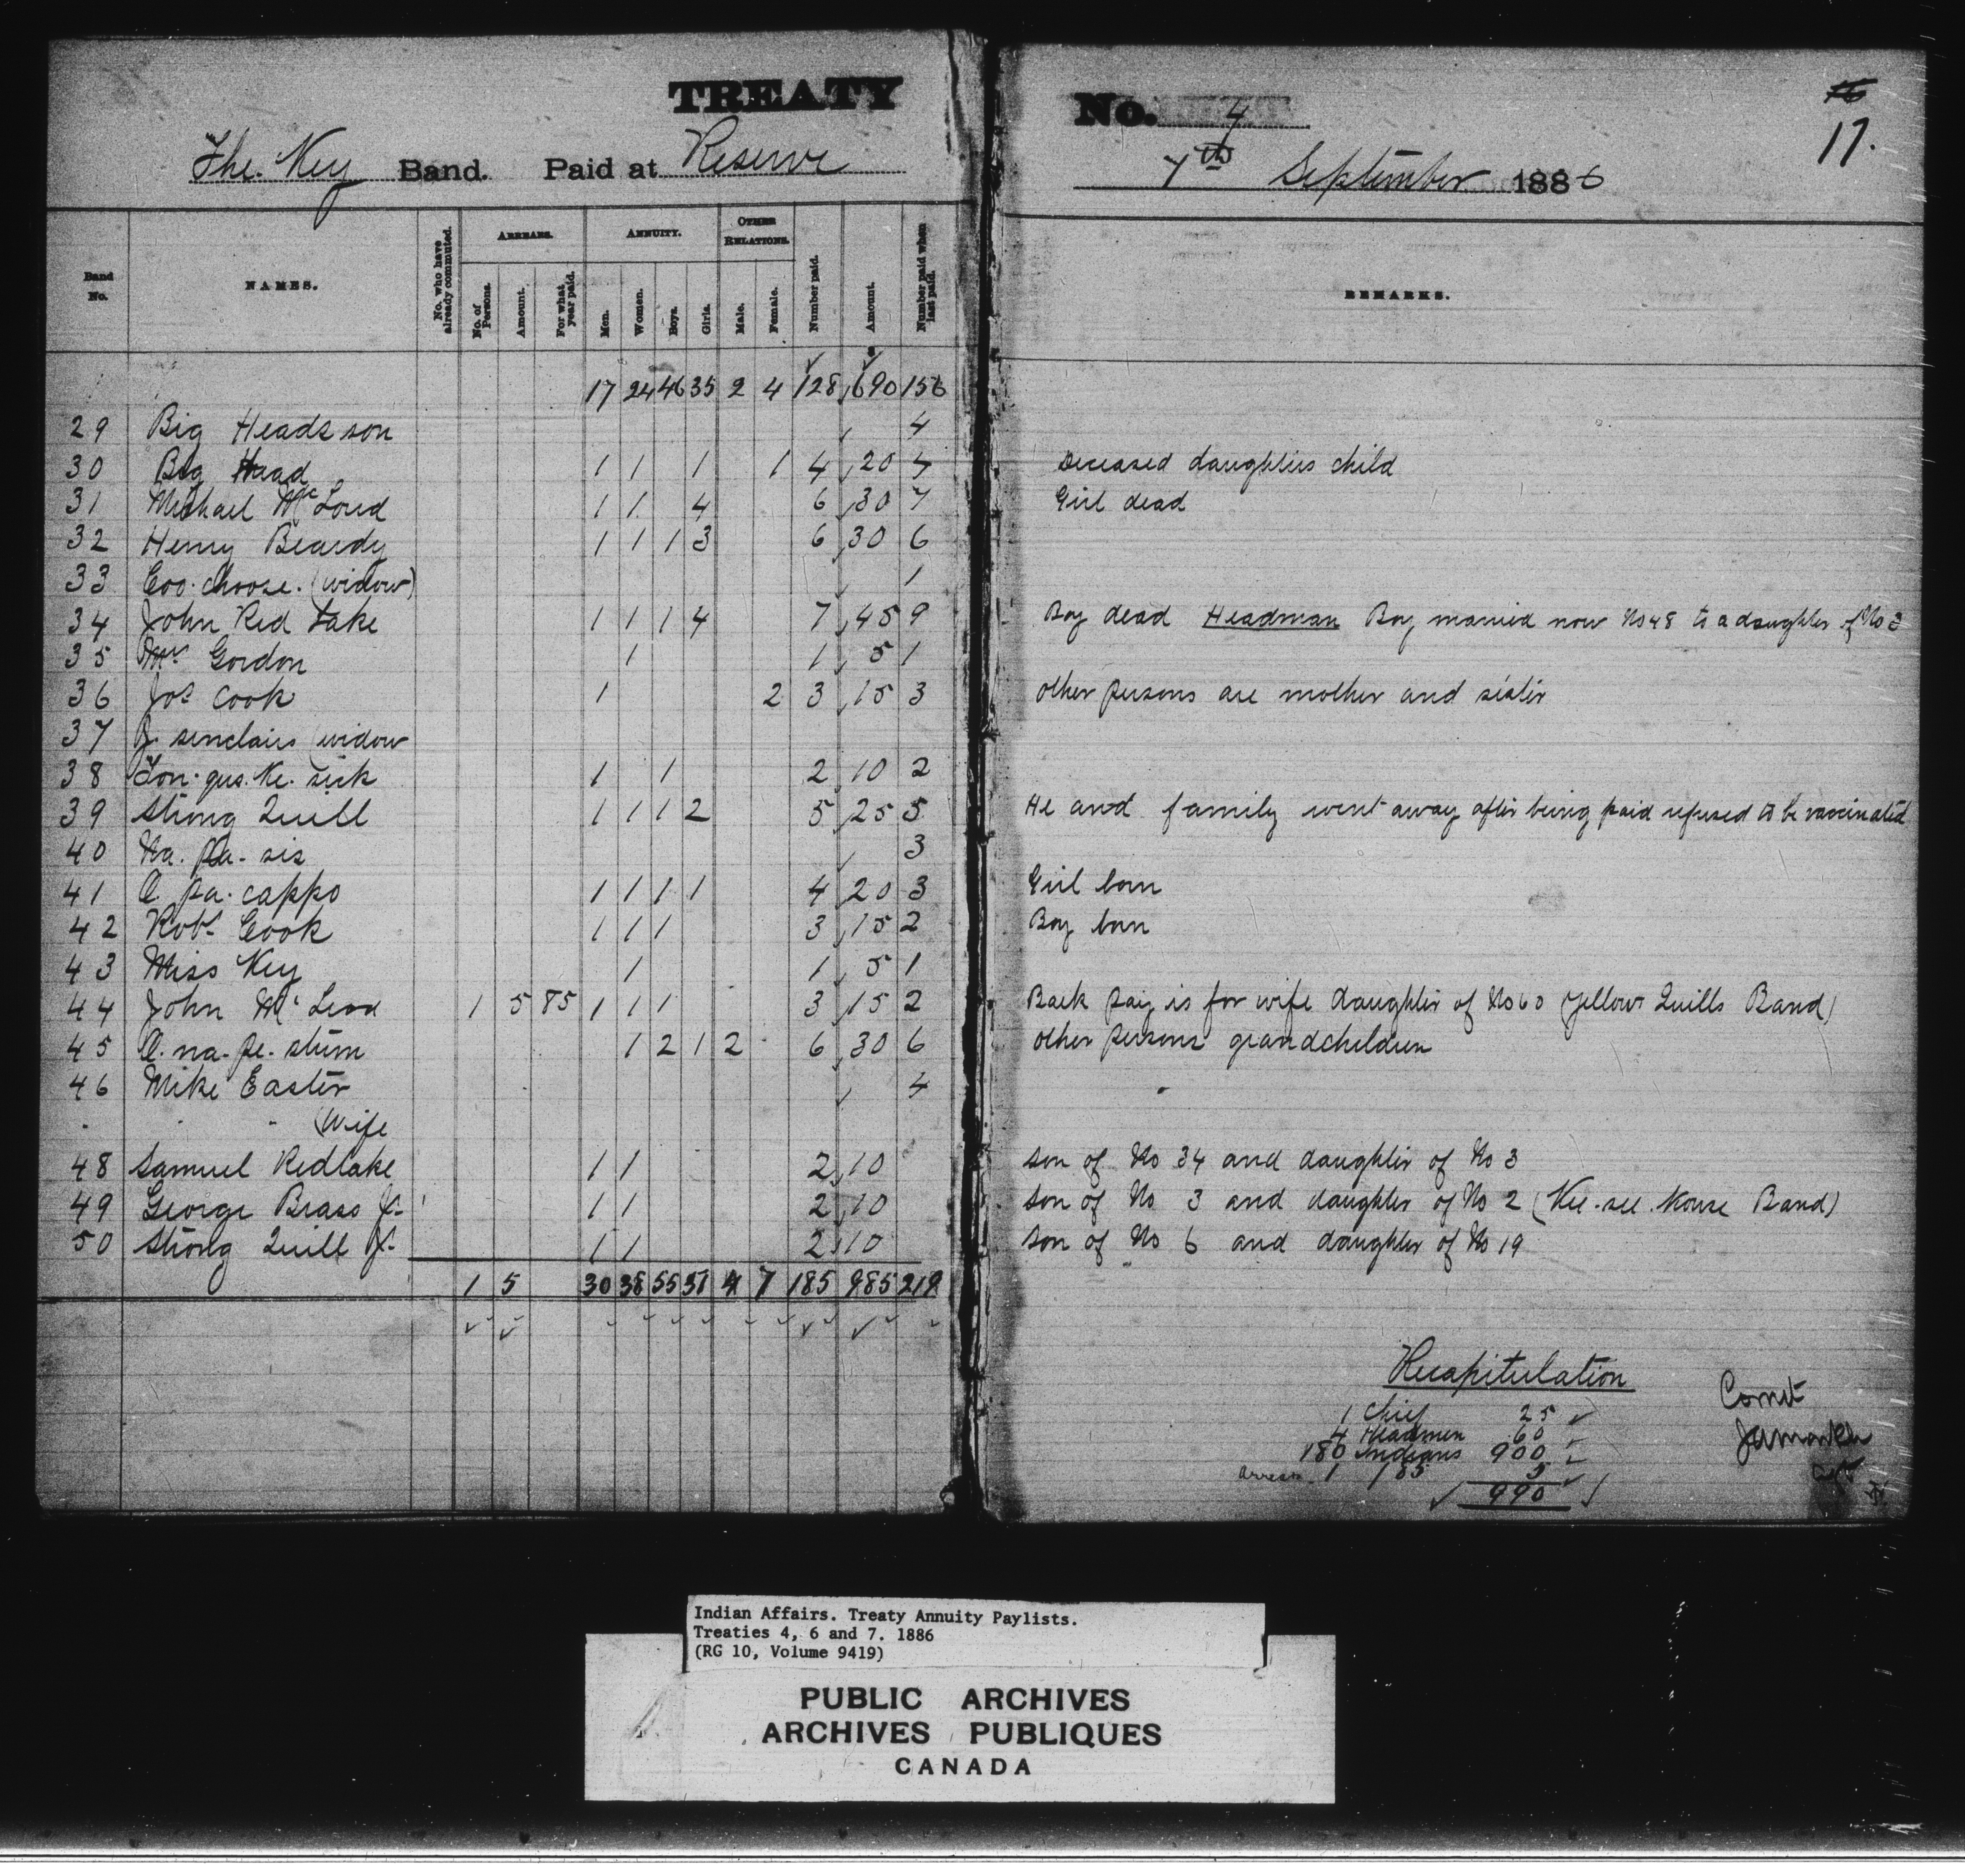 TREATY No. 4
16
17.
The Key Band. Paid at Reserve 7th September 1886
Band No. NAMES. No. who have already commuted. ARREARS. No. of Persons. Amount. For what year paid. ANNUITY. Men. Women. Boys. Girls. OTHER RELATIONS. Male. Female. Number paid. Amount. Number paid when last paid. REMARKS.
17 24 46 35 2 4 128 690 156
29 Big Heads son 4
30 Big Head 1 1 1 1 4 20 4 Deceased daughters child
31 Michael McLoud 1 1 4 6 30 7 Girl dead
32 Henry Beardy 1 1 1 3 6 30 6
33 Coo. choose. (widow) 1
34 John Red Lake 1 1 1 4 7 45 9 Boy dead Headman Boy married now No 48 to a daughter of No 3
35 Gordon 1 1 5 1
36 Jos Cook 1 2 3 15 3 other persons are mother and sister
37 J. sinclairs (widow
38 Ton. gus. Ke. sick 1 1 2 10 2
39 Strong Quill 1 1 1 2 5 25 5 He and family went away after being paid refused to be vaccinated
40 Na. pa- sis 3
41 A pa. cappo 1 1 1 1 4 20 3 Girl born
42 Robt Cook 1 1 1 3 15 2 Boy born
43 Miss Key 1 1 5 1
44 John McLeod 1 5 85 1 1 1 3 15 2 Back pay is for wife daughter of No 60 (Yellow Quills Band)
45 A. na. pe. stum 1 2 1 2 6 30 6 other persons grandchildren
46 Mike Easter 4
" " (Wife
48 Samuel Redlake 1 1 2 10 son of No 34 and daughter of No 3
49 George Brass Jr 1 1 2 10 son of No 3 and daughter of No 2 (Kee. see. kouse Band)
50 Strong Quill Jr 1 1 2 10 son of No 6 and daughter of No 19
1 5 30 38 55 51 4 7 185 985 219
Recapitulation
1 Chief 25
4 Headmen 60
180 Indians 900
arrears 1 185 5
990
Correct
Indian Affairs. Treaty Annuity Paylists.
Treaties 4, 6 and 7. 1886
(RG 10, Volume 9419)
PUBLIC ARCHIVES
ARCHIVES PUBLIQUES
CANADA